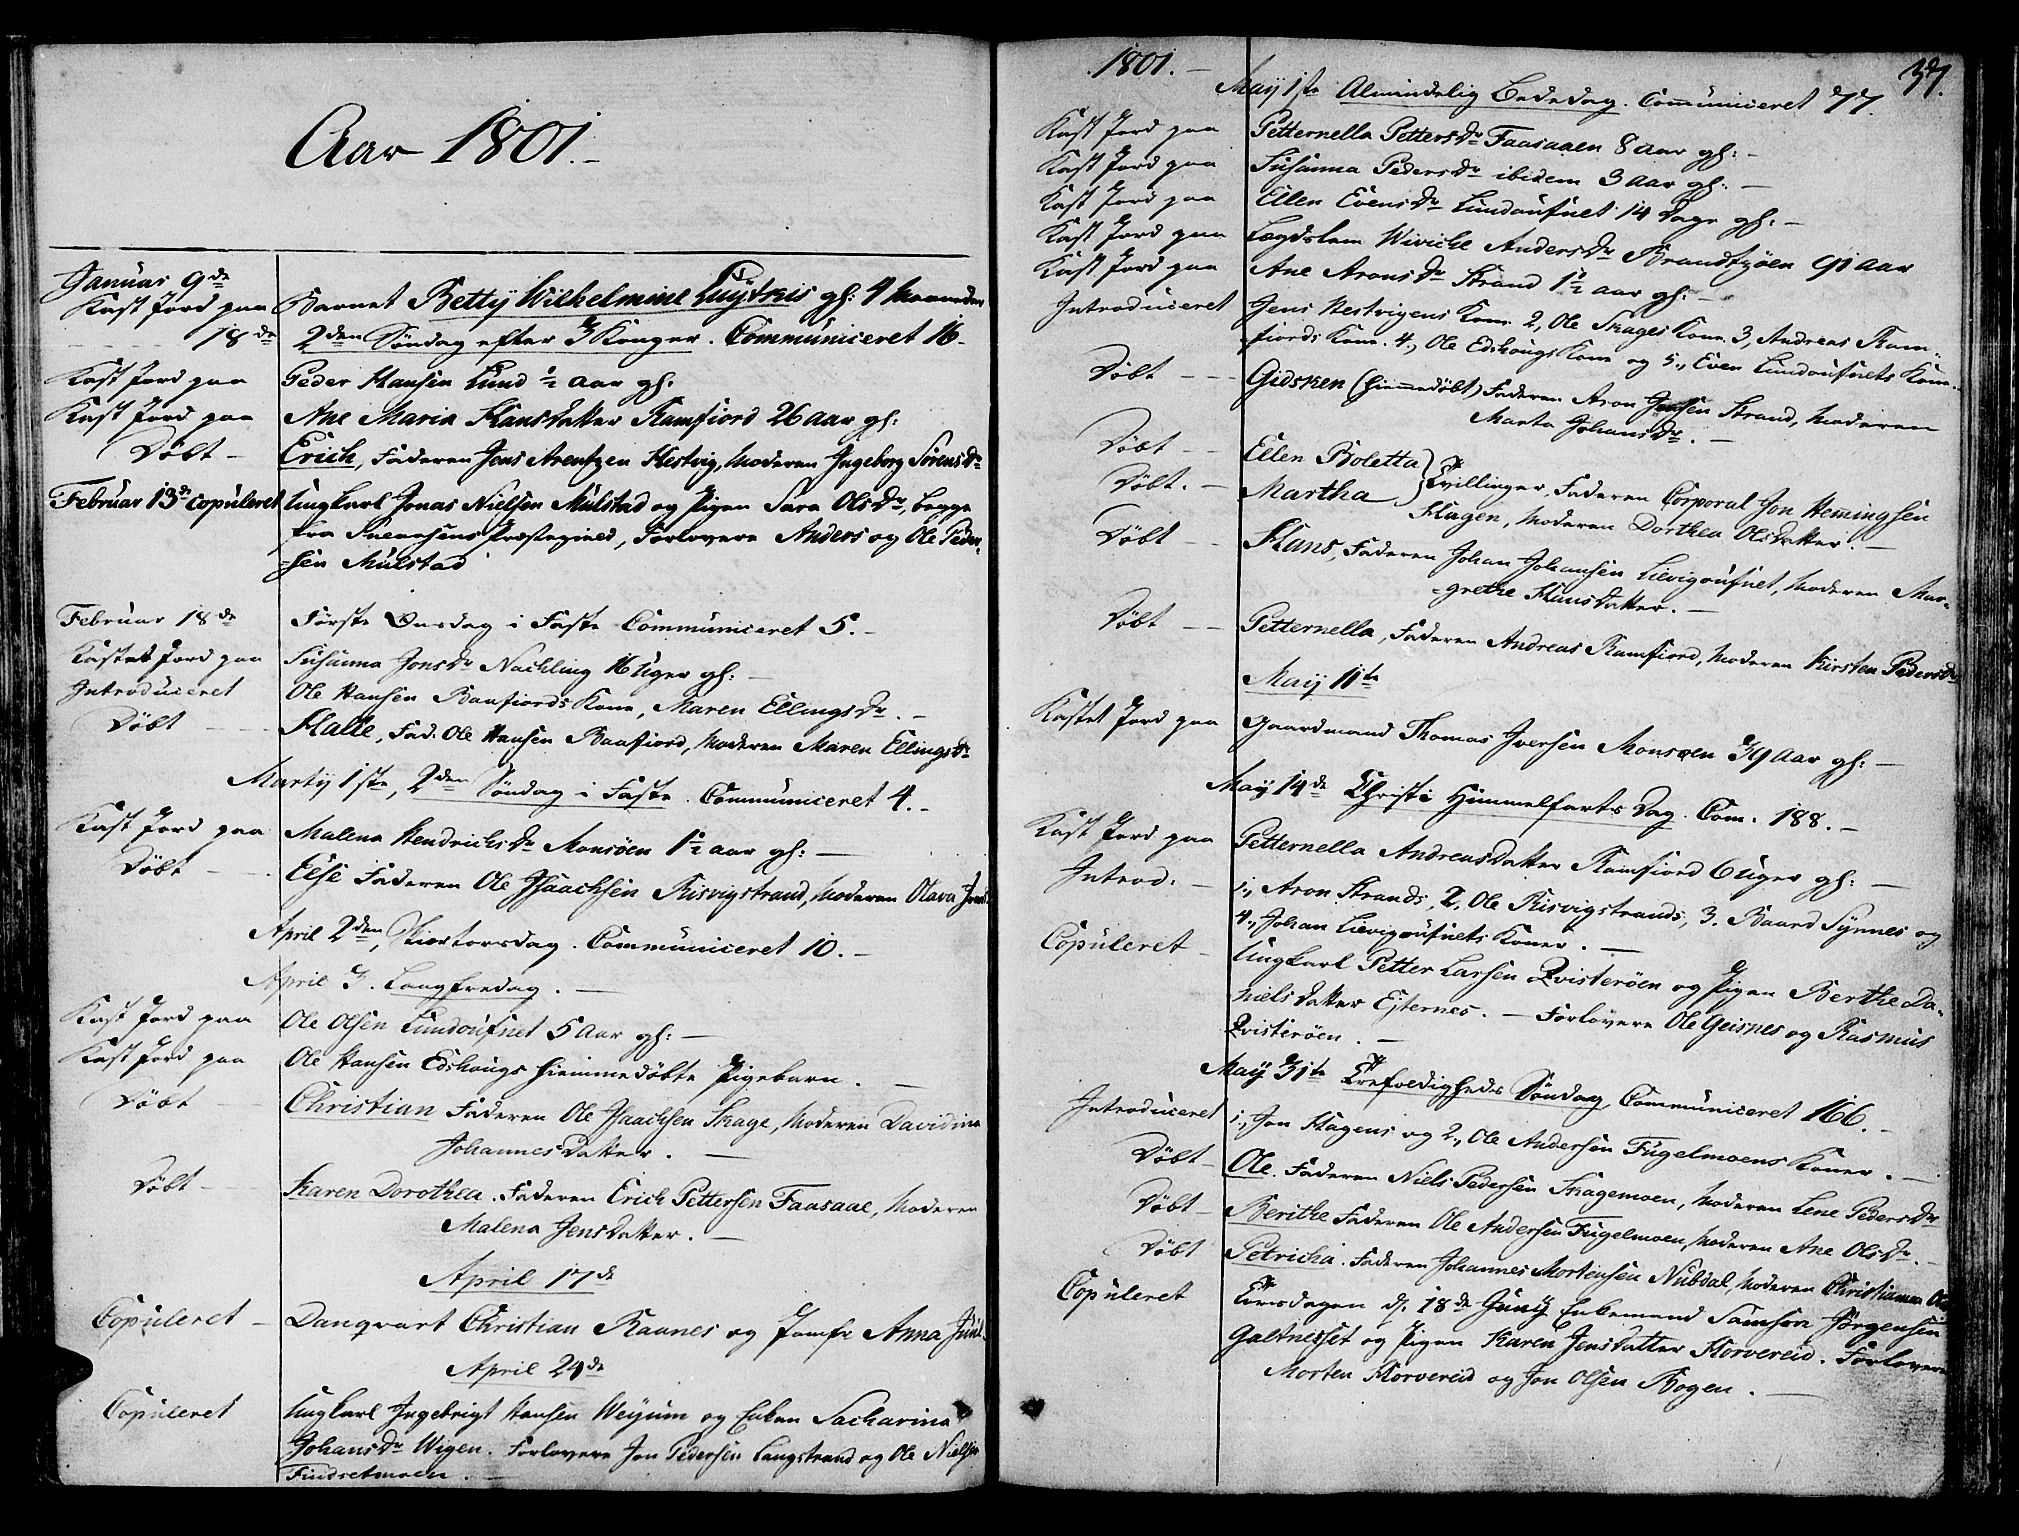 Aar 1801.-
Januar 9de
Kast Jord paa Barnet Betty Wilhelmine gl: 4 Maaneder
18de 2den Søndag efter 3 Konger. Communiceret 16-
Kast Jord paa Peder Hansen Lund ½ aar gl:
Kast Jord paa Ane Maria Hansdatter Ramfiord 26 aar gl:
Døbt - Erich, Faderen Jens Arentzen Hestvig, Moderen Ingeborg Sørensdr
Februar 13de copuleret Ungkarl Jonas Nielsen Mulstad og Pigen Sara Olsdr, begge
fra Snaasens Præstegield, Forlovere Anders og Ole Peder-
-sen Mulstad
Februar 18de Første Onsdag i Faste Communiceret 5.-
Kastet Jord paa Susanna Jonsdr Nachling 16 Uger gl: -
Introduceret Ole Hansen Baafiords Kone, Maren Ellingsdr. -
Døbt - - Halle, Fad. Ole Hansen Baafiord, Moderen Maren Ellingsdr
Martÿ 1ste, 2den Søndag i Faste. Communiceret 4.-
Kast Jord paa Malena Hendrichsdr Monsøen 1½ aar gl: -
Døbt - - Else Faderen Ole Isaachsen Risvigstrand, Moderen Olava
April 2den, Skiertorsdag. Communiceret 10.-
April 3. Langfredag. -
Kast Jord paa Ole Olsen Lundousnet 5 Aar gl: -
Kast Jord paa Ole Hansen Edshougs hiemmedøbte Pigebarn. -
Døbt - - Christian Faderen Ole Isaachsen Skage, Moderen Davidina
Johannesdatter. -
Døbt - - Karen Dorothea. Faderen Erich Pettersen Faasaae, Moderen
Malena Jensdatter. -
April 17de
Copuleret - Danqvart Christian Raanes og Jomfr Anna
April 24de
Copuleret Ungkarl Ingebrigt Hansen Weÿum og Enken Sacharina
Johansdr Wigen. Forlovere Jon Pedersen Langstrand og Ole Nielsen
Findretmoen. -
1801.- 37.
Maÿ 1ste Almindelig Bededag. Communiceret 77.
Kast Jord paa Petternella Pettersdr Faasaaen 8 aar gl: -
Kast Jord paa Susanna Pedersdr ibidem 3 aar gl: -
Kast Jord paa Ellen Evensdr Lundousnet 14 Dage gl: -
Kast Jord paa Lægdslem Wiviche Andersdr Brandtzøen 91 aar
Kast Jord paa Ane Aronsdr Strand 1½ aar gl: -
Introduceret Jens Hestvigens Kone 2, Ole Skages Kone 3, Andreas Ram-
fiords Kone. 4., Ole Edshougs Kone og 5., Even Lundousnets Kone.
Døbt - - Gidsken (hiemmedøbt) Faderen Aron Jensen Strand, Moderen
Marta Johansdr. -
Døbt - - Ellen Boletta
Døbt. - Martha } Tvillinger, Faderen Corporal Jon Hemingsen
Hagen, Moderen Dorthea Olsdatter. -
Døbt - - Hans, Faderen Johan Johansen Lievigousnet, Moderen Mar-
-grethe Hansdatter. -
Døbt - - Petternella, Faderen Andreas Ramfiord, Moderen Kirsten Pedersdr
Maÿ 11te
Kastet Jord paa Gaardmand Thomas Iversen Monsøen 39 aar gl: -
Maÿ 14de Christi Himmelfarts Dag. Com. 188.-
Kast Jord paa Petternella Andreasdatter Ramfiord 6 Uger gl: -
Introd: - 1., Aron Strands, 2, Ole Risvigstrands, 3. Baard Synnes og
4., Johan Lievigousnets Koner. -
Copuleret - Ungkarl Petter Larsen Qvisterøen og Pigen Berthe Da-
nielsdatter Esternes. - Forlovere Ole Geisnes og Rasmus
Qvisterøen. -
Maÿ 31te Trefoldigheds Søndag, Communiceret 166.-
Introduceret 1., Jon Hagens og 2., Ole Andersen Fugelmoens Koner. -
Døbt - Ole. Faderen Niels Pedersen Skagemoen, Moderen Lene Pedersdr
Døbt - Berithe Faderen Ole Andersen Fugelmoen, Moderen Ane Olsdr. -
Døbt Petricha. Faderen Johannes Mortensen Nubdal, Moderen Christianna
Copuleret Torsdagen d. 18de Junÿ Enkemand Samson Jørgensen
Galtneset og Pigen Karen Jensdatter Horvereid. Forlovere
Morten Horvereid og Jon Olsen Bogen. -